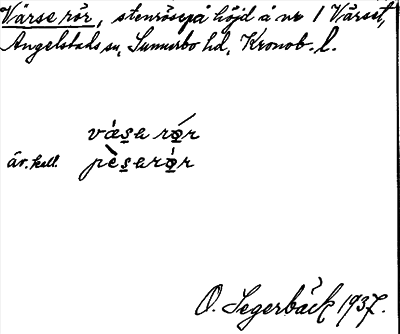 Vårse rör, stenröse på höjd å nr 1 Vårset,
Angelstads sn, Sunnerbo hd, Kronob. l.
vå̀sa rǿr
äv. kall. pèsarǿr
O. Segerbäck 1937.